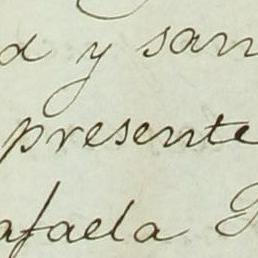 y san
presente
afaela